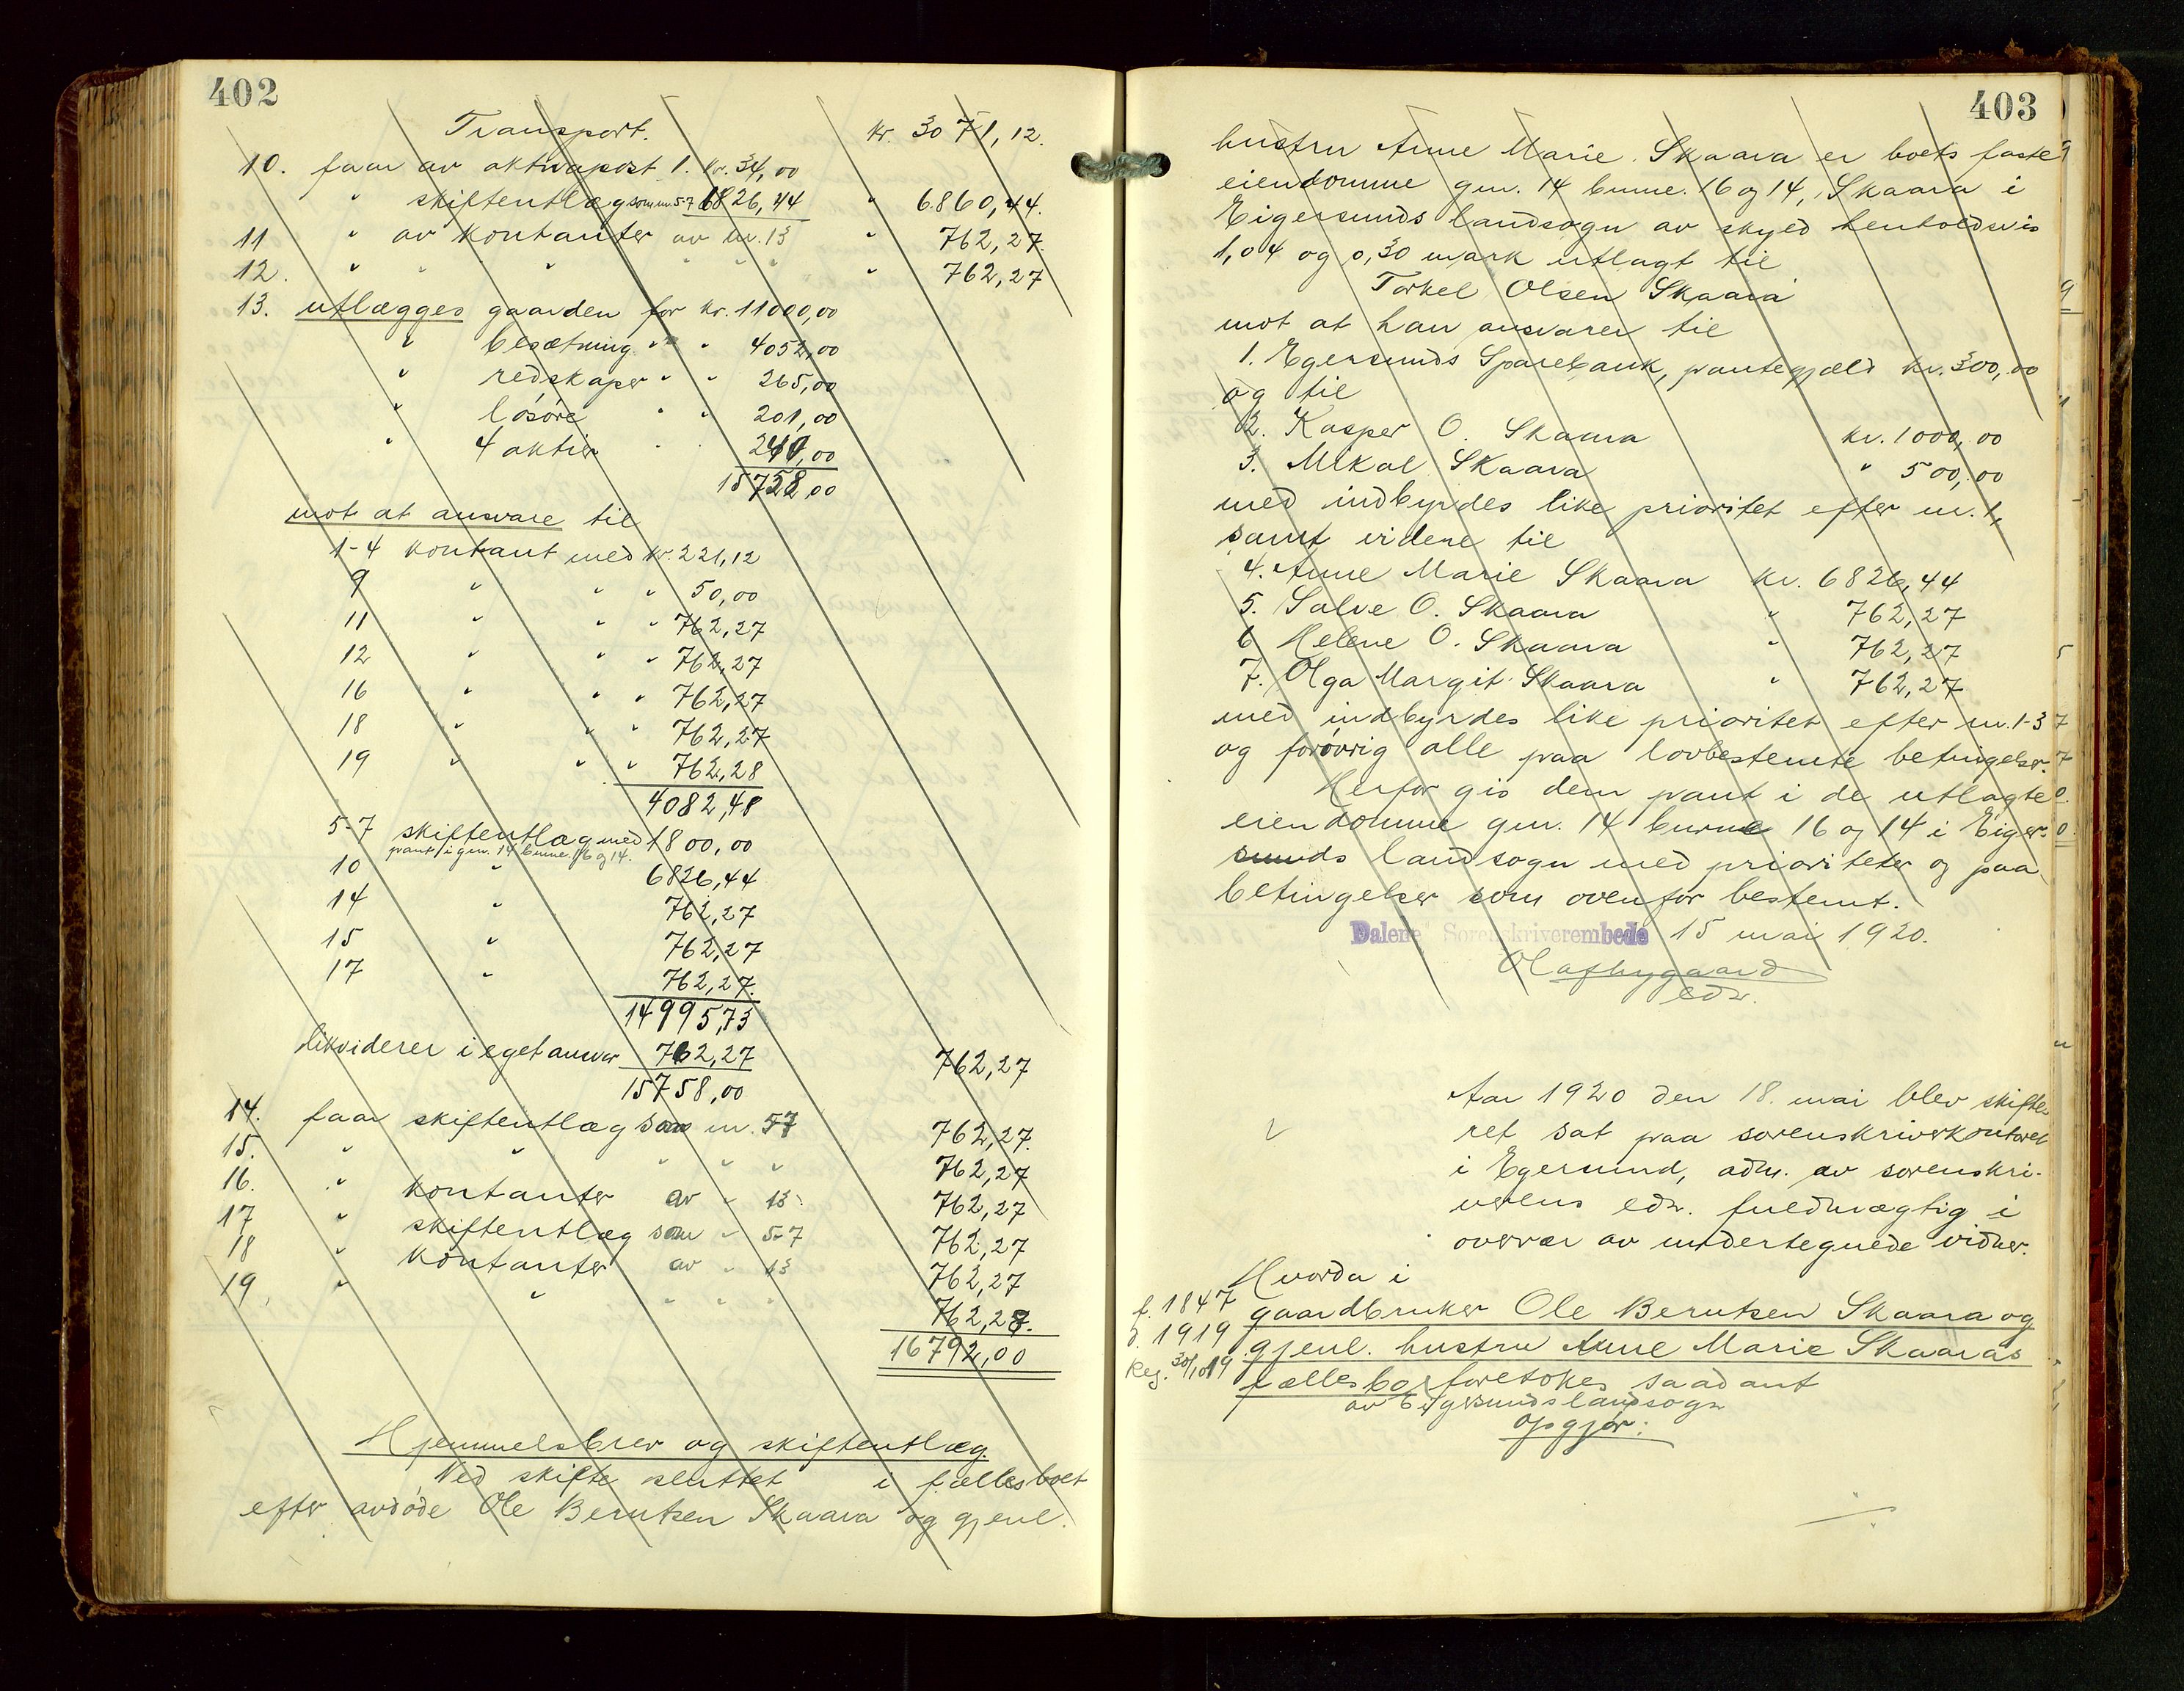 402
Transport. kr. 3071,12.
10. faar av aktivapost 1. kr. 34,00
" skifteutlæg som nr. 5-7 6826,44 " 6860,44.
11 " av kontanter av nr. 13 " 762,27.
12. " " " " " " " 762,27
13. utlægges gaarden for kr. 11000,00
" besætning " " 4052,00
" redskaper " " 265,00
" løsøre " " 201,00
" 4 aktier " " 240,00
15758,00
mot at ansvare til
1-4 kontant med kr. 221,12
9 " " " 50,00
11 " " " 762,27
12 " " " 762,27
16 " " " 762,27
18 " " " 762,27
19 " " " 762,28
4082,48
5-7 skifteutlæg med 1800,00
pant i gnr. 14 bnrne. 16 og 14.
10 " 6826,44
14 " 762,27
15 " 762,27
17 " 762,27.
14995,73
likviderer i eget ansvar 762,27 762,27
15758,00
14. faar skifteutlæg som nr. 5-7 762,27.
15. " " " " " 762,27
16. " kontanter av " 13. 762,27
17 " skifteutlæg som " 5-7 762,27
18 " kontanter av " 13 762,27
19. " " " " " 762,28.
16792,00
Hjemmelsbrev og skifteutlæg.
Ved skifte sluttet i fællesboet
efter avdøde Ole Berntsen Skaara og gjenl.
403
hustru Anne Marie Skaara er boets faste
eiendomme gnr. 14 bnrne. 16 og 14, Skaara i
Eigersunds landsogn av skyld henholdsvis
1,04 og 0,30 mark utlagt til
Torkel Olsen Skaara
mot at han ansvarer til
1. Egersunds Sparebank, pantegjæld kr. 300,00
og til
2. Kasper O. Skaara kr. 1000,00
3. Mikal Skaara " 500,00
med indbyrdes like prioritet efter nr. 1,
samt videre til
4. Anne Marie Skaara kr. 6826,44
5. Salve O. Skaara " 762,27
6 Helene O. Skaara " 762,27
7. Olga Margit Skaara " 762,27
med indbyrdes like prioritet efter nr. 1-3
og forøvrig alle paa lovbestemte betingelser.
Herfor gis dem pant i de utlagte
eiendomme gnr. 14 bnrne 16 og 14 i Eiger-
sunds landsogn med prioriteter og paa
betingelser som ovenfor bestemt.
Dalene Sorenskriverembede 15 mai 1920.
Olaf Nygaard
edv.
Aar 1920 den 18. mai blev skifte-
ret sat paa sorenskriverkontoret
i Egersund, adm. av sorenskri-
verens edv. fuldmægtig i
overvær av undertegnede vidner.
Hvorda i
f. 1847 gaardbruker Ole Berntsen Skaara og
d. 1919 gjenl. hustru Anne Marie Skaaras
Reg. 30/10 19 fællesbo foretokes saadant
av Eigersunds landsogn
opgjør: